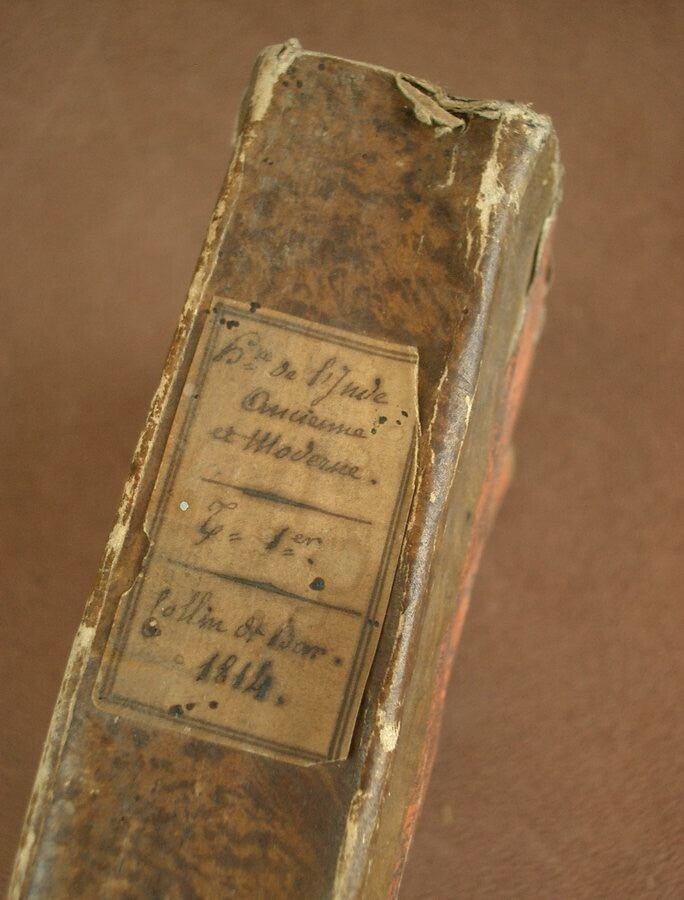 H.re de l'Inde
Ancienne
et Moderne.
T= 1er.
Collin de Bar.
1814.